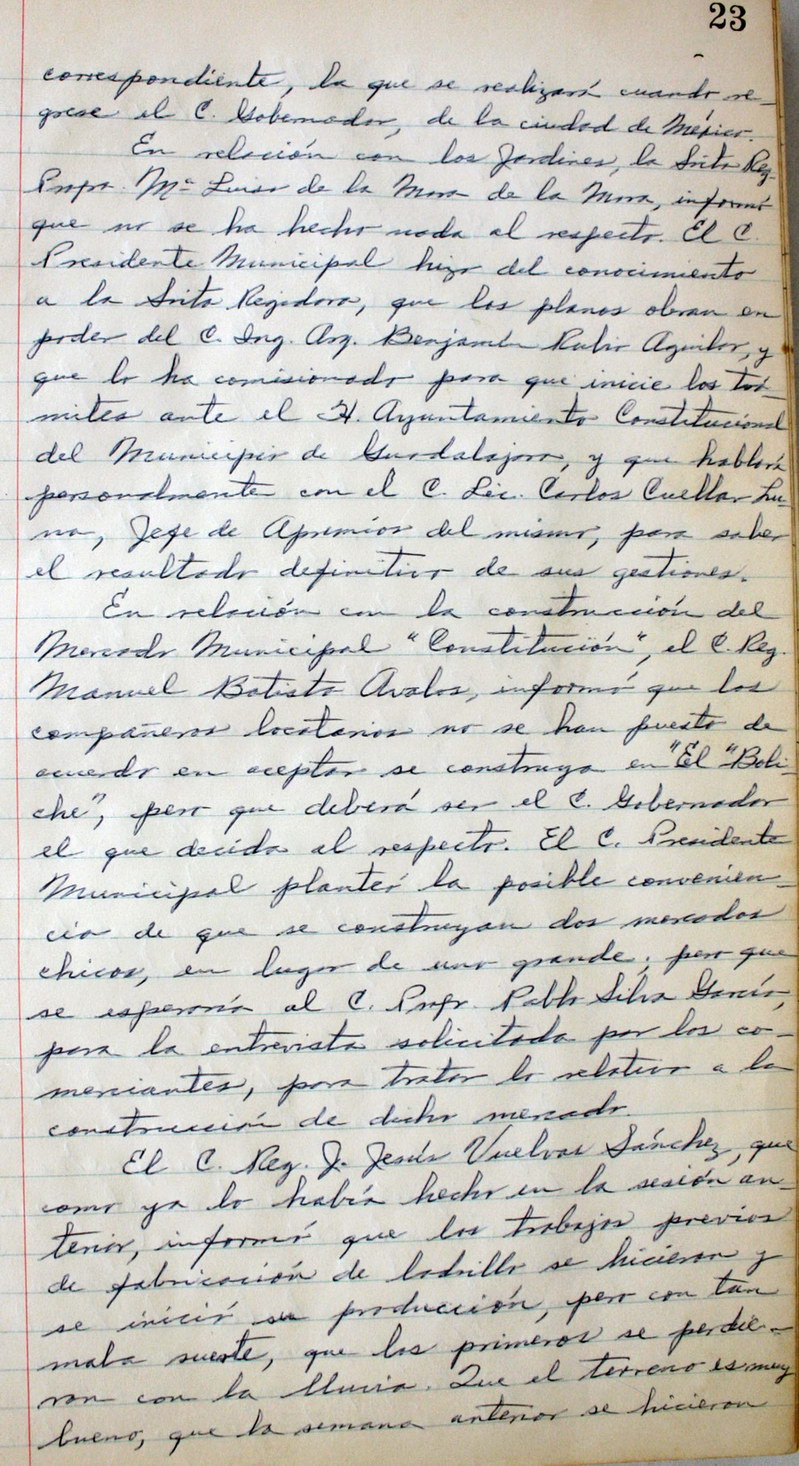 23
correspondiente, la que se realizará cuando re-
grese el C. Gobernador, de la ciudad de México.
En relación con los Jardines, la Srita Reg.
Profra. Ma Luisa de la Mora de la Mora, informó
que no se ha hecho nada al respecto. El C.
Presidente Municipal hizo del conocimiento
a la Srita Regidora, que los planos obran en
poder del C. Ing. Arq. Benjamín Rubio Aguilar, y
que lo ha comisionado para que inicie los trá-
mites ante el H. Ayuntamiento Constitucional
del Municipio de Guadalajara, y que hablará
personalmente con el C. Lic. Carlos Cuellar Lu-
na, Jefe de Apremios del mismo, para saber
el resultado definitivo de sus gestiones.
En relación con la construcción del
Mercado Municipal "Constitución", el C. Reg.
Manuel Batista Avalos, informó que los
compañeros locatarios no se han puesto de
acuerdo en aceptar se construya en "El "Boli-
che", pero que deberá ser el C. Gobernador
el que decida al respecto. El C. Presidente
Municipal planteó la posible convenien-
cia de que se construyan dos mercados
chicos, en lugar de uno grande; pero que
se esperaría al C. Profr. Pablo Silva García,
para la entrevista solicitada por los co-
merciantes, para tratar lo relativo a la
construcción de dicho mercado.
El C. Reg. J. Jesús Vuelvas Sánchez, que
como ya lo había hecho en la sesión an-
terior, informó que los trabajos previos
de fabricación de ladrillo se hicieron y
se inició su producción, pero con tan
mala suerte, que los primeros se perdie-
ron con la lluvia. Que el terreno es muy
bueno, que la semana anterior se hicieron